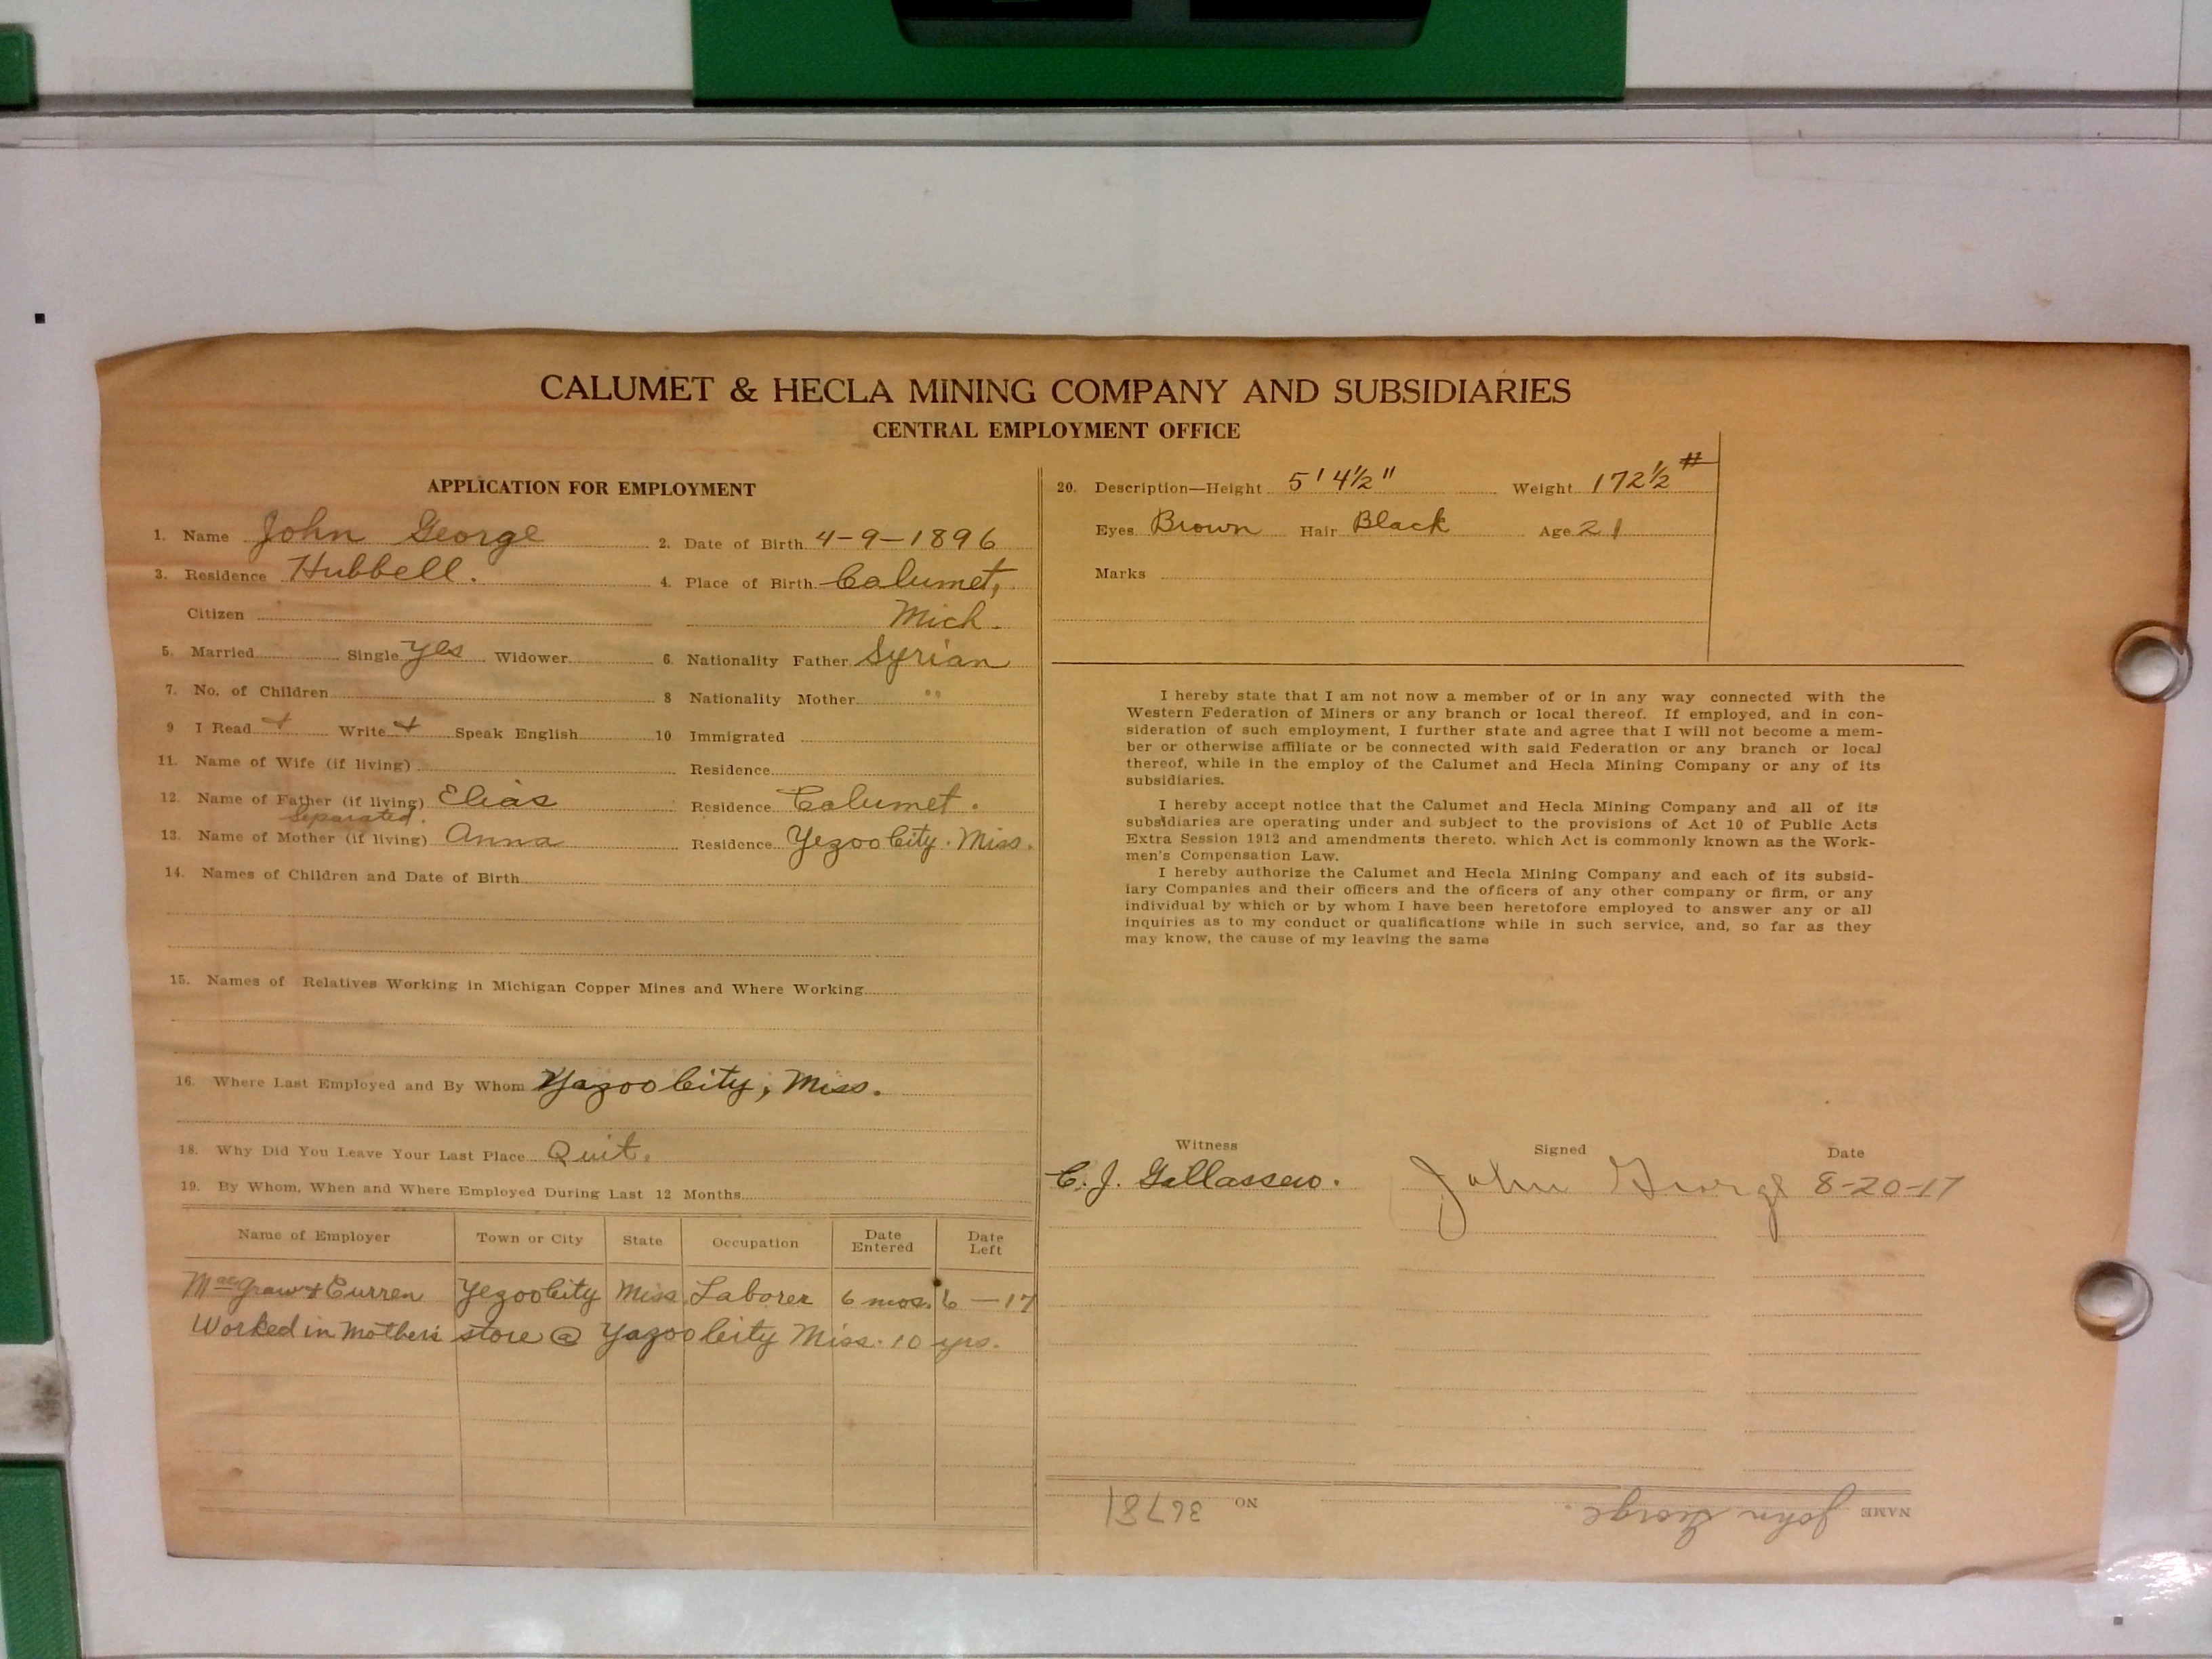 CALUMET & HECLA MINING COMPANY AND SUBSIDIARIES
CENTRAL EMPLOYMENT OFFICE
APPLICATION FOR EMPLOYMENT
1. Name John George 2. Date of Birth 4-9-1896
3. Residence Hubbell. 4. Place of Birth Calumet,
Citizen Mich.
5. Married Single yes Widower 6. Nationality Father Syrian
7. No. of Children 8 Nationality Mother "
9 I Read + Write + Speak English 10 Immigrated
11. Name of Wife (if living) Residence
12. Name of Father (if living) Elias Residence Calumet.
Separated.
13. Name of Mother (if living) Anna Residence Yezoo City. Miss.
14. Names of Children and Date of Birth
15. Names of Relatives Working in Michigan Copper Mines and Where Working
16. Where Last Employed and By Whom Yazoo City, Miss.
18. Why Did You Leave Your Last Place Quit.
19. By Whom, When and Where Employed During Last 12 Months
Name of Employer Town or City State Occupation Date Entered Date Left
MacGraw & Curren Yezoo City Miss. Laborer 6 mos. 6-17
Worked in Mother's store @ Yazoo City Miss. 10 yrs.
20. Description—Height 5' 4½" Weight 172½ #
Eyes Brown Hair Black Age 21
Marks
I hereby state that I am not now a member of or in any way connected with the
Western Federation of Miners or any branch or local thereof. If employed, and in con-
sideration of such employment, I further state and agree that I will not become a mem-
ber or otherwise affiliate or be connected with said Federation or any branch or local
thereof, while in the employ of the Calumet and Hecla Mining Company or any of its
subsidiaries.
I hereby accept notice that the Calumet and Hecla Mining Company and all of its
subsidiaries are operating under and subject to the provisions of Act 10 of Public Acts
Extra Session 1912 and amendments thereto. which Act is commonly known as the Work-
men's Compensation Law.
I hereby authorize the Calumet and Hecla Mining Company and each of its subsid-
iary Companies and their officers and the officers of any other company or firm, or any
individual by which or by whom I have been heretofore employed to answer any or all
inquiries as to my conduct or qualifications while in such service, and, so far as they
may know, the cause of my leaving the same
Witness Signed Date
C. J. John George 8-20-17
NAME John George. NO 36781